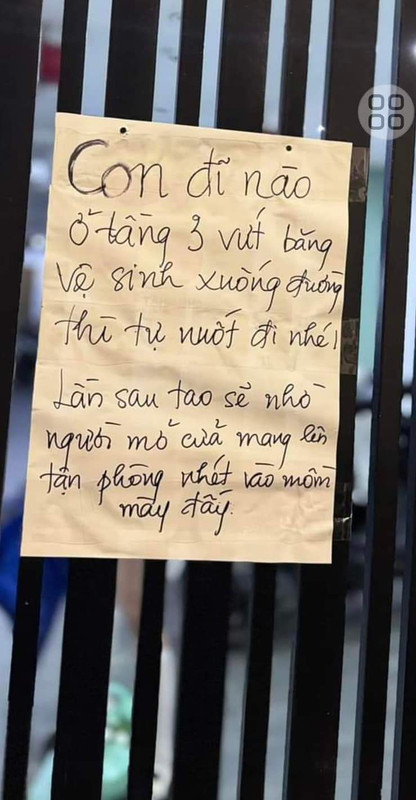 Con đĩ nào
ở tầng 3 vứt băng
vệ sinh xuống đường
thì tự nuốt đi nhé!
Lần sau tao sẽ nhờ
người mở cửa mang lên
tận phòng nhét vào mồm
mày đấy.